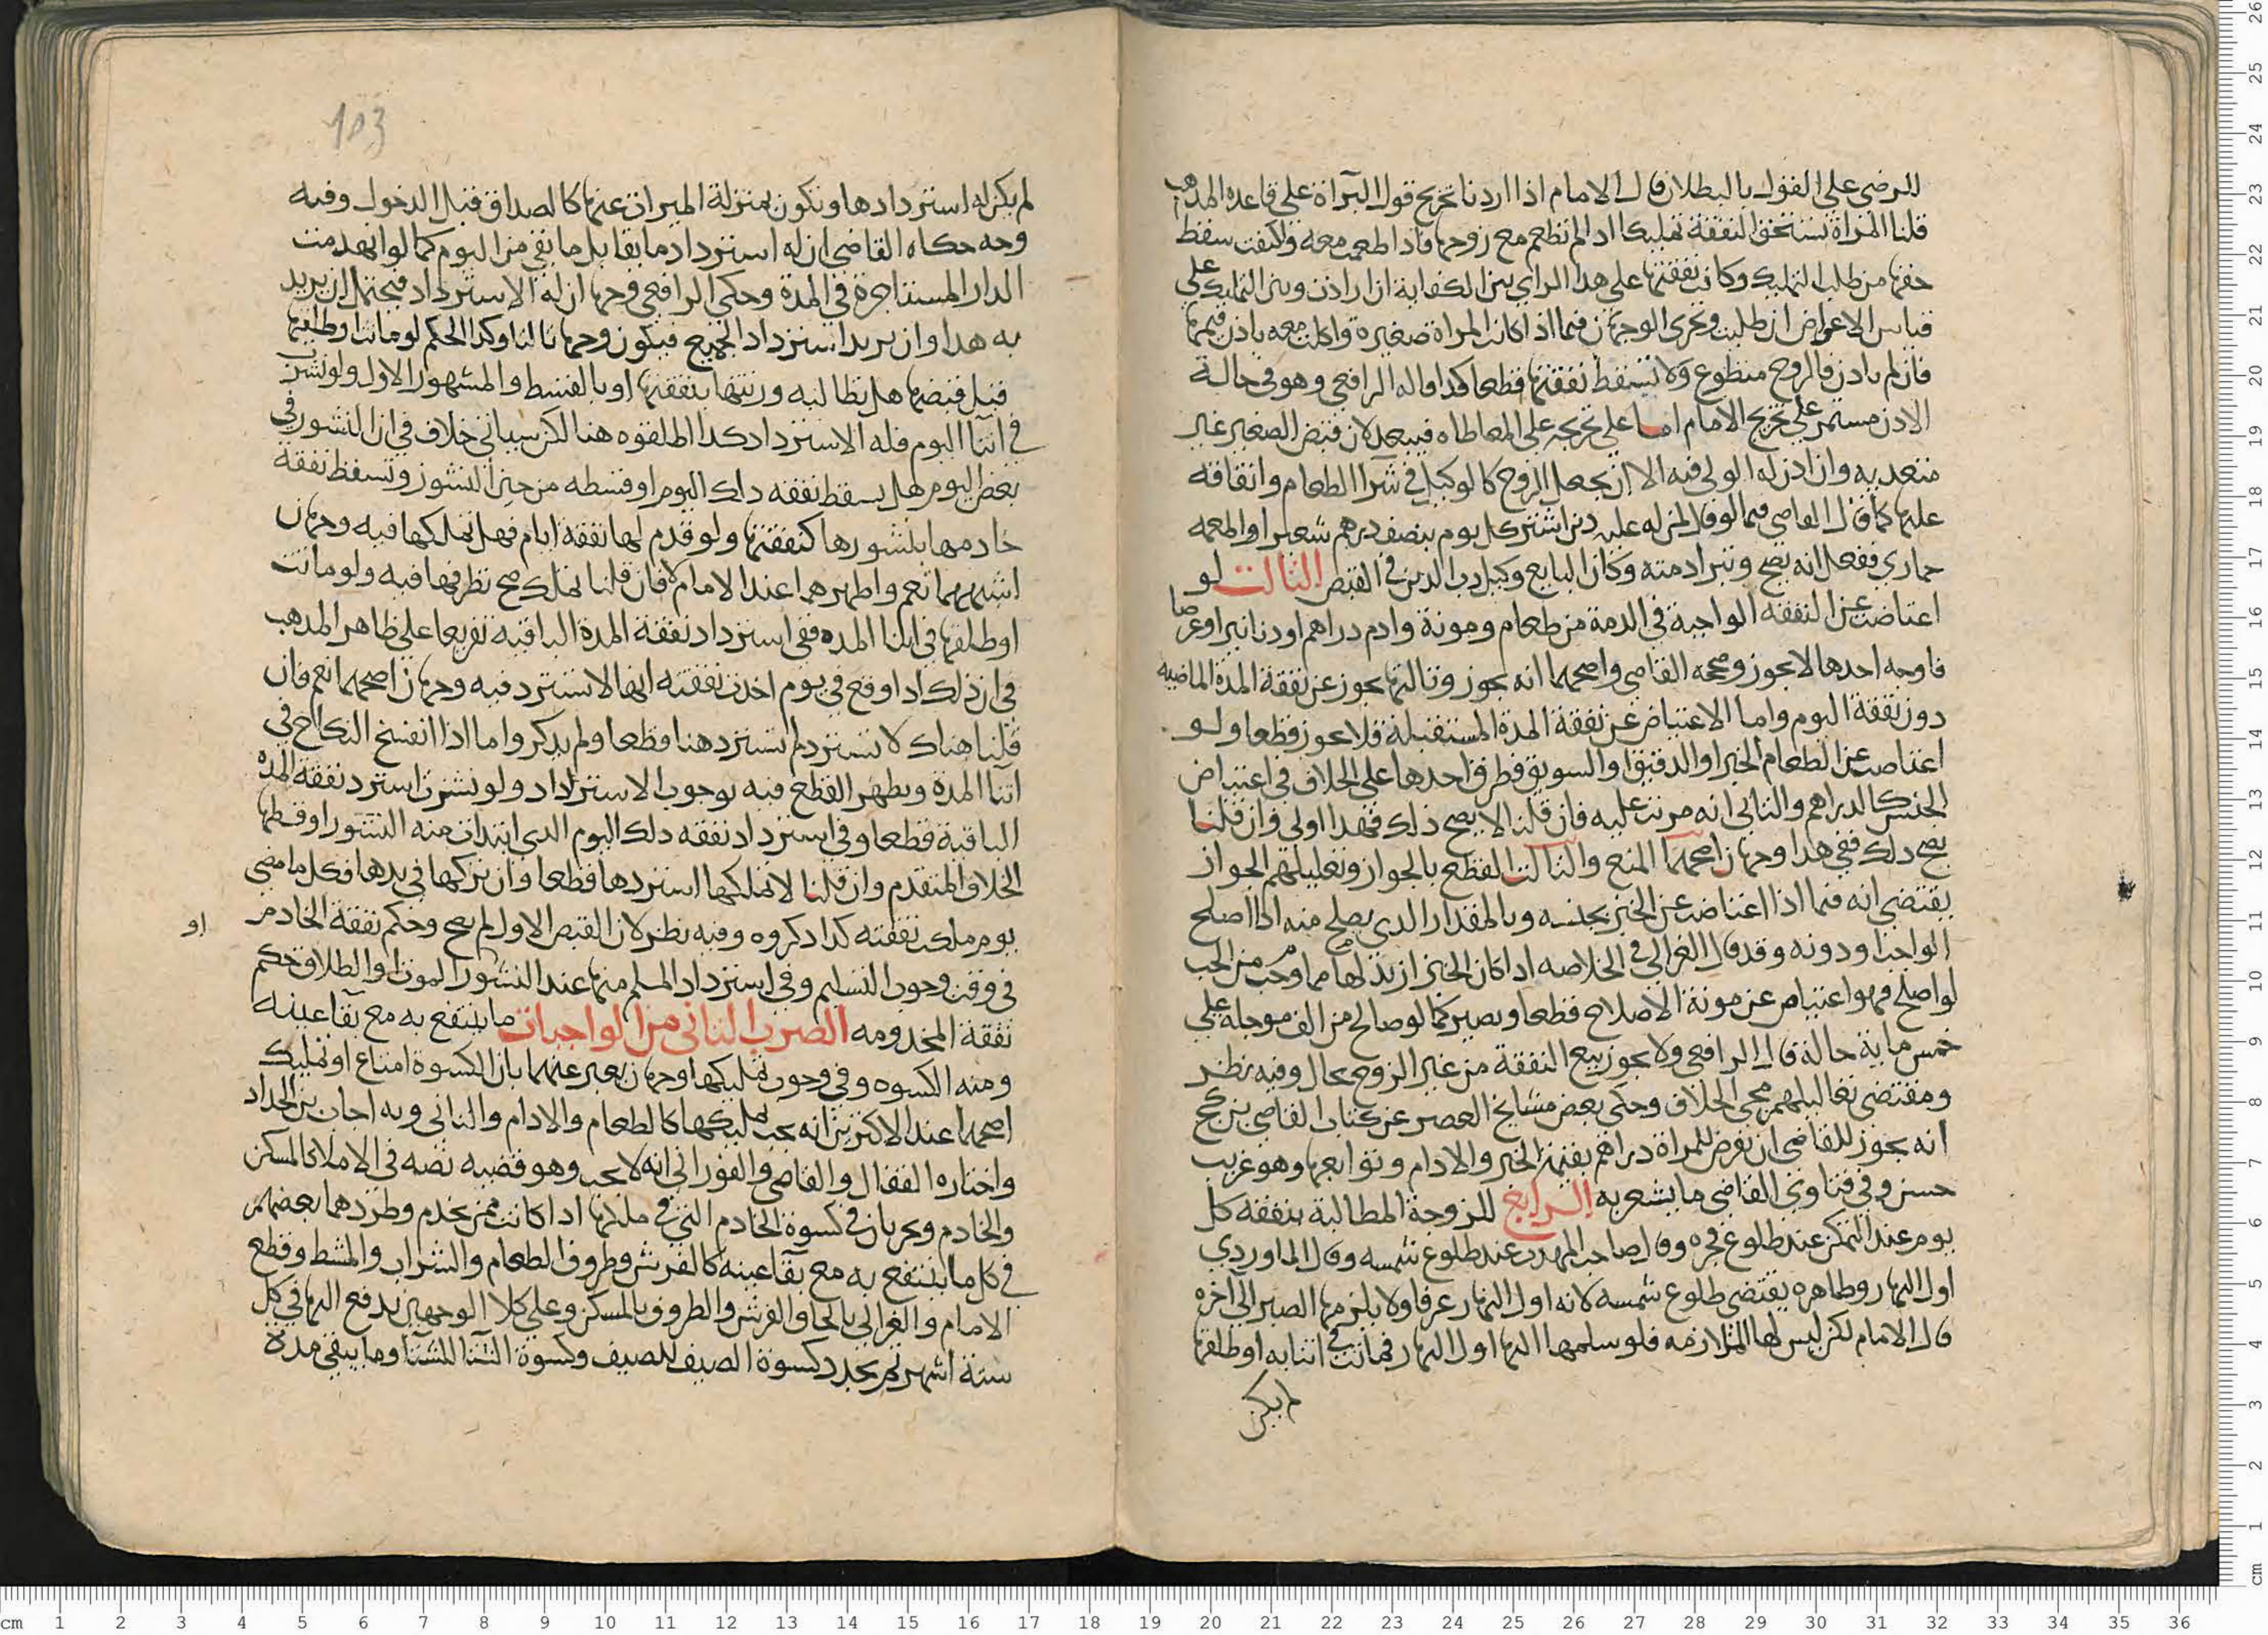 للرضى على القول بالبطلان قال الامام اذا اردنا تخريج قول البراة على قاعده المذهب
قلنا المراة تستحق النفقة تمليكا اذا لم تطعم مع زوجها فاذا طعمت معه واكتفت سقط
حقها من طلب التمليك وكانت نفقتها على هذا الراي بين الكفاية ان ارادت وبين التمليك على
قياس الاعواض ان طلبت وتجرى الوجهان فيما اذا كانت المراة صغيرة واكلت معه باذن قيمها
فان لم ياذن فالزوج متطوع ولا تسقط نفقتها قطعا كذا قاله الرافعي وهو في حالة
الاذن مستمر على تخريج الامام اما على تخريجه على المعاطاه فيبعد لان قبض الصغير غير
معتد به وان اذن له الولى فيه الا ان يجعل الزوج كالوكيل في شرا الطعام وانفاقه
عليها كما قال القاضي فيما لو قال لمن له عليه دين اشتر كل يوم بنصف درهم شعيرا واطعمه
حماري ففعل انه يصح وتبرا ذمته وكان البايع وكيل رب الدين في القبض الثالث لو
اعتاضت عن النفقه الواجبة في الذمة من طعام ومونة وادم دراهم او دنانير او عرضا
فاوجه احدها لا يجوز وصححه القاضي واصحهما انه يجوز وثالثها يجوز عن نفقة المدة الماضيه
دون نفقة اليوم واما الاعتياض عن نفقة المدة المستقبلة فلا يجوز قطعا ولو
اعتاضت عن الطعام الخبز او الدقيق او السويق فطرق احدها على الخلاف في اعتياض
الجنس كالدراهم والثاني انه مرتب عليه فان قلنا لا يصح ذلك فهذا اولى وان قلنا
يصح ذلك ففي هذا وجهان اصحهما المنع والثالث القطع بالجواز وتعليلهم الجواز
يقتضي انه فيما اذا اعتاضت عن الخبز بجنسه وبالمقدار الذي يصلح منه اذا اصلح
الواجب او دونه وقد قال الغزالي في الخلاصه اذا كان الخبز ازيد لها مما وجب من الحب
لو اصلح فهو اعتياض عن مونة الاصلاح قطعا ويصير كما لو صالح من الف موجله على
خمس ماية حالة قال الرافعي ولا يجوز بيع النفقة من غير الزوج بحال وفيه نظر
ومقتضى تعاليلهم مجي الخلاف وحكى بعض مشايخ العصر عن كتاب القاضي بن كج
انه يجوز للقاضي ان يفرض للمراة دراهم بقيمة الخبز والادام وتوابعها وهو غريب
حسن وفي فتاوى القاضي ما يشعر به الرابع للزوجة المطالبة بنفقة كل
يوم عند التمكن عند طلوع فجره وقال صاحب المهذب عند طلوع شمسه وقال الماوردي
اول النهار وظاهره يقتضي طلوع شمسه لانه اول النهار عرفا ولا يلزمها الصبر الى اخره
قال الامام لكن ليس لها الملازمه فلو سلمها اليها اول النهار فماتت في اثنايه او طلقها
لم يكن
103
لم يكن له استردادها وتكون بمنزلة الميراث عنها كالصداق قبل الدخول وفيه
وجه حكاه القاضي ان له استرداد ما يقابل ما بقي من اليوم كما لو انهدمت
الدار المستاجرة في المدة وحكى الرافعي وجها ان له الاسترداد فيحتمل ان يريد
به هذا وان يريد استرداد الجميع فيكون وجها ثالثا وكذا الحكم لو ماتت او طلقها
قبل قبضها هل تطالبه ورثتها بنفقتها او بالقسط والمشهور الاول ولو نشزت
في اثنا اليوم فله الاسترداد كذا اطلقوه هنا لكن سياتي خلاف في ان النشوز في
بعض اليوم هل يسقط نفقه ذلك اليوم او قسطه من حين النشوز وتسقط نفقة
خادمها بنشوزها كنفقتها ولو قدم لها نفقة ايام فهل تملكها فيه وجهان
اشبههما نعم واظهرهما عند الامام لا فان قلنا تملك صح تصرفها فيه ولو ماتت
او طلقها في اثنا المده ففي استرداد نفقة المدة الباقيه تفريعا على ظاهر المذهب
في ان ذلك اذا وقع في يوم اخذت نفقته انها لا تسترد فيه وجهان اصحهما نعم فان
قلنا هناك لا تسترد لم تسترد هنا قطعا ولم يذكر واما اذا انفسخ النكاح في
اثنا المدة ويظهر القطع فيه بوجوب الاسترداد ولو نشزت استرد نفقة المده
الباقية قطعا وفي استرداد نفقه ذلك اليوم الذي ابتدات منه النشوز او قسطها
الخلاف المتقدم وان قلنا لا تملكها استردها قطعا وان تركها في يدها فكل ما مضى
يوم ملكت نفقته كذا ذكروه وفيه نظر لان القبض الاول لم يصح وحكم نفقة الخادم
او
في وقت وجوب التسليم وفي استرداد المسلم منها عند النشوز او الموت او الطلاق حكم
نفقة المخدومه الضرب الثاني من الواجبات ما ينتفع به مع بقا عينه
ومنه الكسوه وفي وجوب تمليكها وجهان يعبر عنهما بان الكسوة امتاع او تمليك
اصحهما عند الاكثرين انه يجب تمليكها كالطعام والادام والثاني وبه اجاب بن الحداد
واختاره القفال والقاضي والفوراني انه لا يجب وهو قضيه نصه في الاملا كالمسكن
والخادم ويجريان في كسوة الخادم التي في ملكها اذا كانت ممن يخدم وطردهما بعضهم
في كل ما ينتفع به مع بقا عينه كالفرش وظروف الطعام والشراب والمشط وقطع
الامام والغزالي بالحاق الفرش والظروف بالمسكن وعلى كلا الوجهين يدفع اليها في كل
ستة اشهر ثم يجدد كسوة الصيف للصيف وكسوة الشتا للشتا وما يبقى مدة